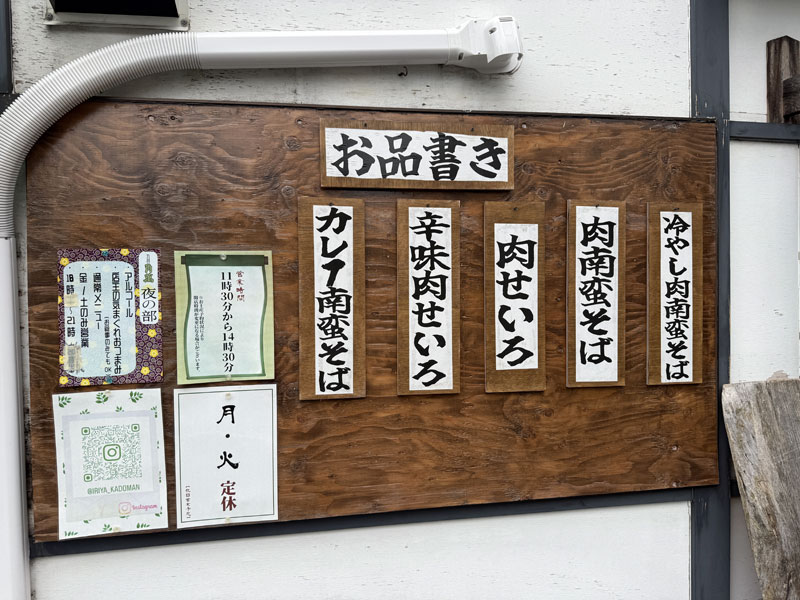 お品書き
冷やし肉南蛮そば
肉南蛮そば
肉せいろ
辛味肉せいろ
カレー南蛮そば
営業時間
11時30分から14時30分
夜の部
アルコール
店主の気まぐれおつまみ
(お食事のみでもOK
通常メニュー
金／土のみ営業
18時～21時
月・火 定休
@IRIYA_KADOMAN
Instagram